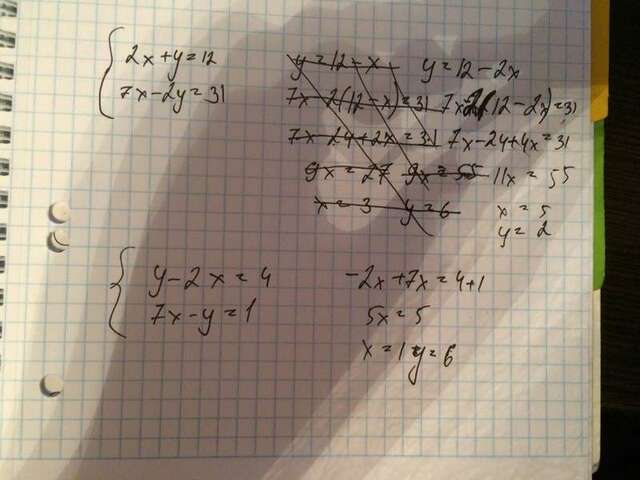 2x+y=12
7x-2y=31
y=12-x
7x-2(12-x)=31
7x-24+2x=31
9x=27 9x=55
x=3 y=6
y=12-2x
7x-2(12-2x)=31
7x-24+4x=31
11x=55
x=5
y=2
y-2x=4
7x-y=1
-2x+7x=4+1
5x=5
x=1 y=6